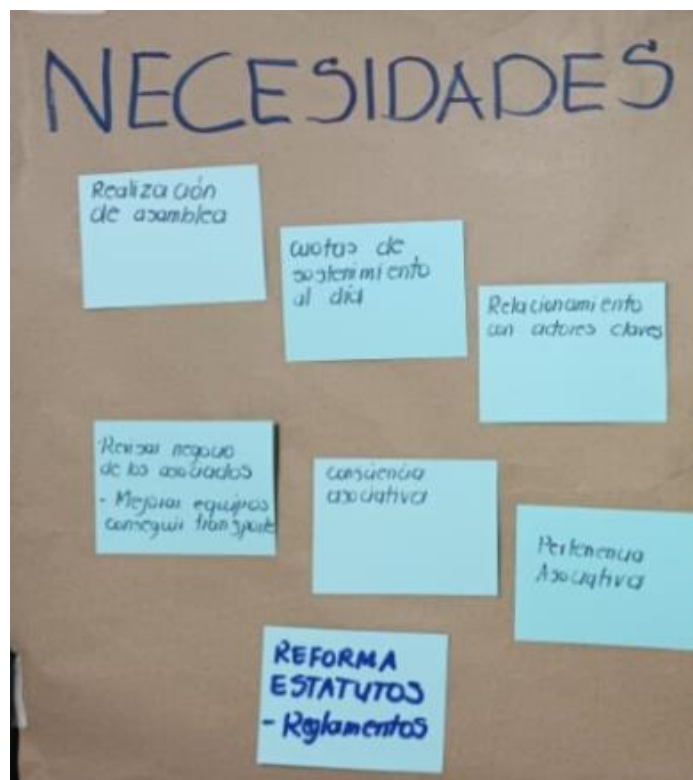 NECESIDADES
Realización
de asamblea
cuotas de
sostenimiento
al día
Relacionamiento
con actores claves
- Revisar negocio
de los asociados
- Mejorar equipos
conseguir transporte
consciencia
asociativa
Pertenencia
Asociativa
REFORMA
ESTATUTOS
- Reglamentos